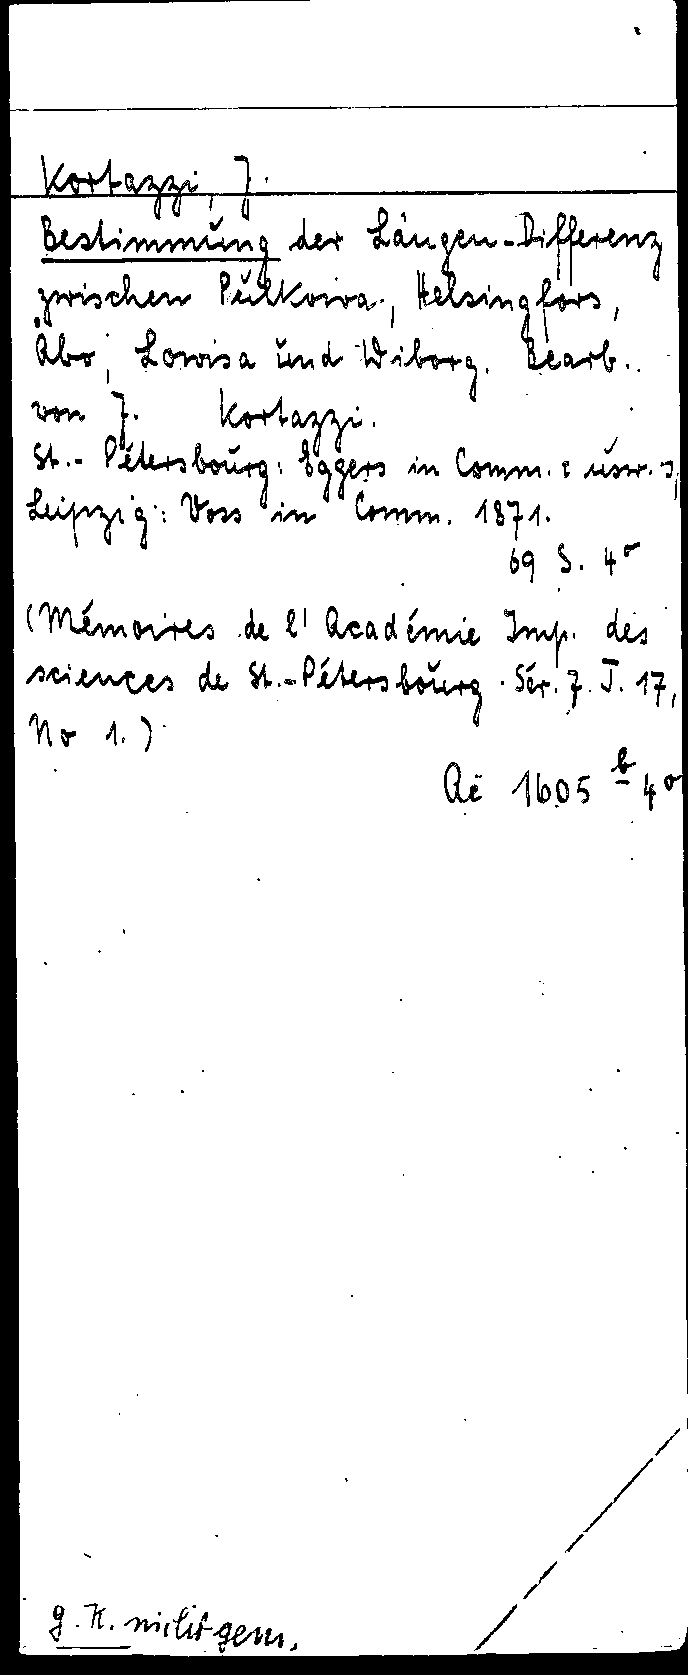 Kortazzi, J.
Bestimmung der Längen-Differenz
zwischen Pulkowa, Helsingfors,
Åbo, Lowisa und Wiborg. Bearb.
von J. Kortazzi.
St.-Pétersbourg: Eggers in Comm. [usw.],
Leipzig: Voss in Comm. 1871.
69 S. 4°
(Mémoires de l'Académie Imp. des
sciences de St.-Pétersbourg. Sér. 7. T. 17,
No 1.)
1605 b 4°
g. K. nicht gem.